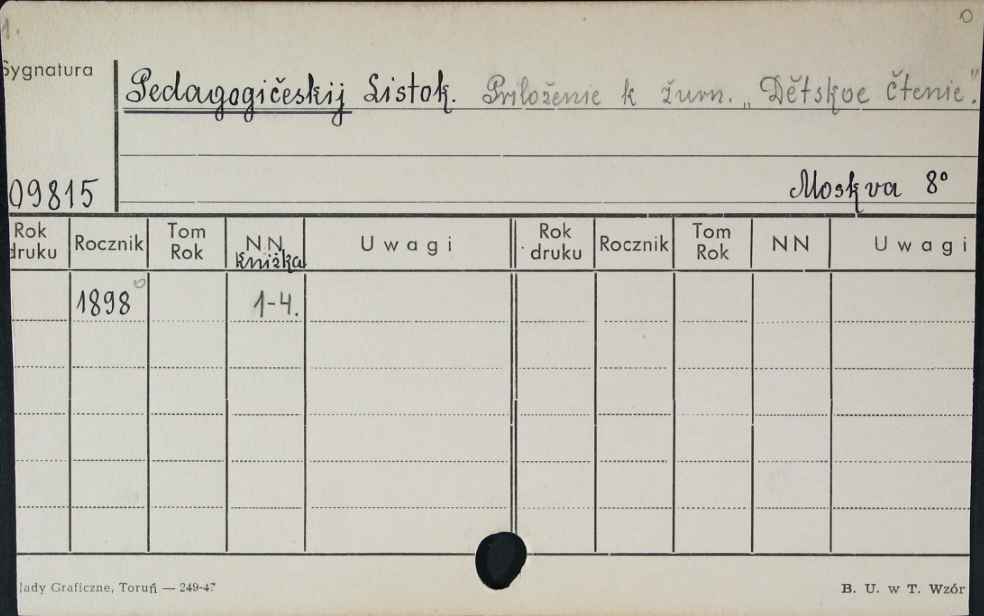 1.
0
Sygnatura
Pedagogičeskij Listok. Priloženie k žurn. „Dětskoe čtenie."
09815
Moskva 8°
Rok druku Rocznik Tom Rok NN knižka Uwagi Rok druku Rocznik Tom Rok NN Uwagi
1898 1-4.
lady Graficzne, Toruń — 249-47
B. U. w T. Wzór